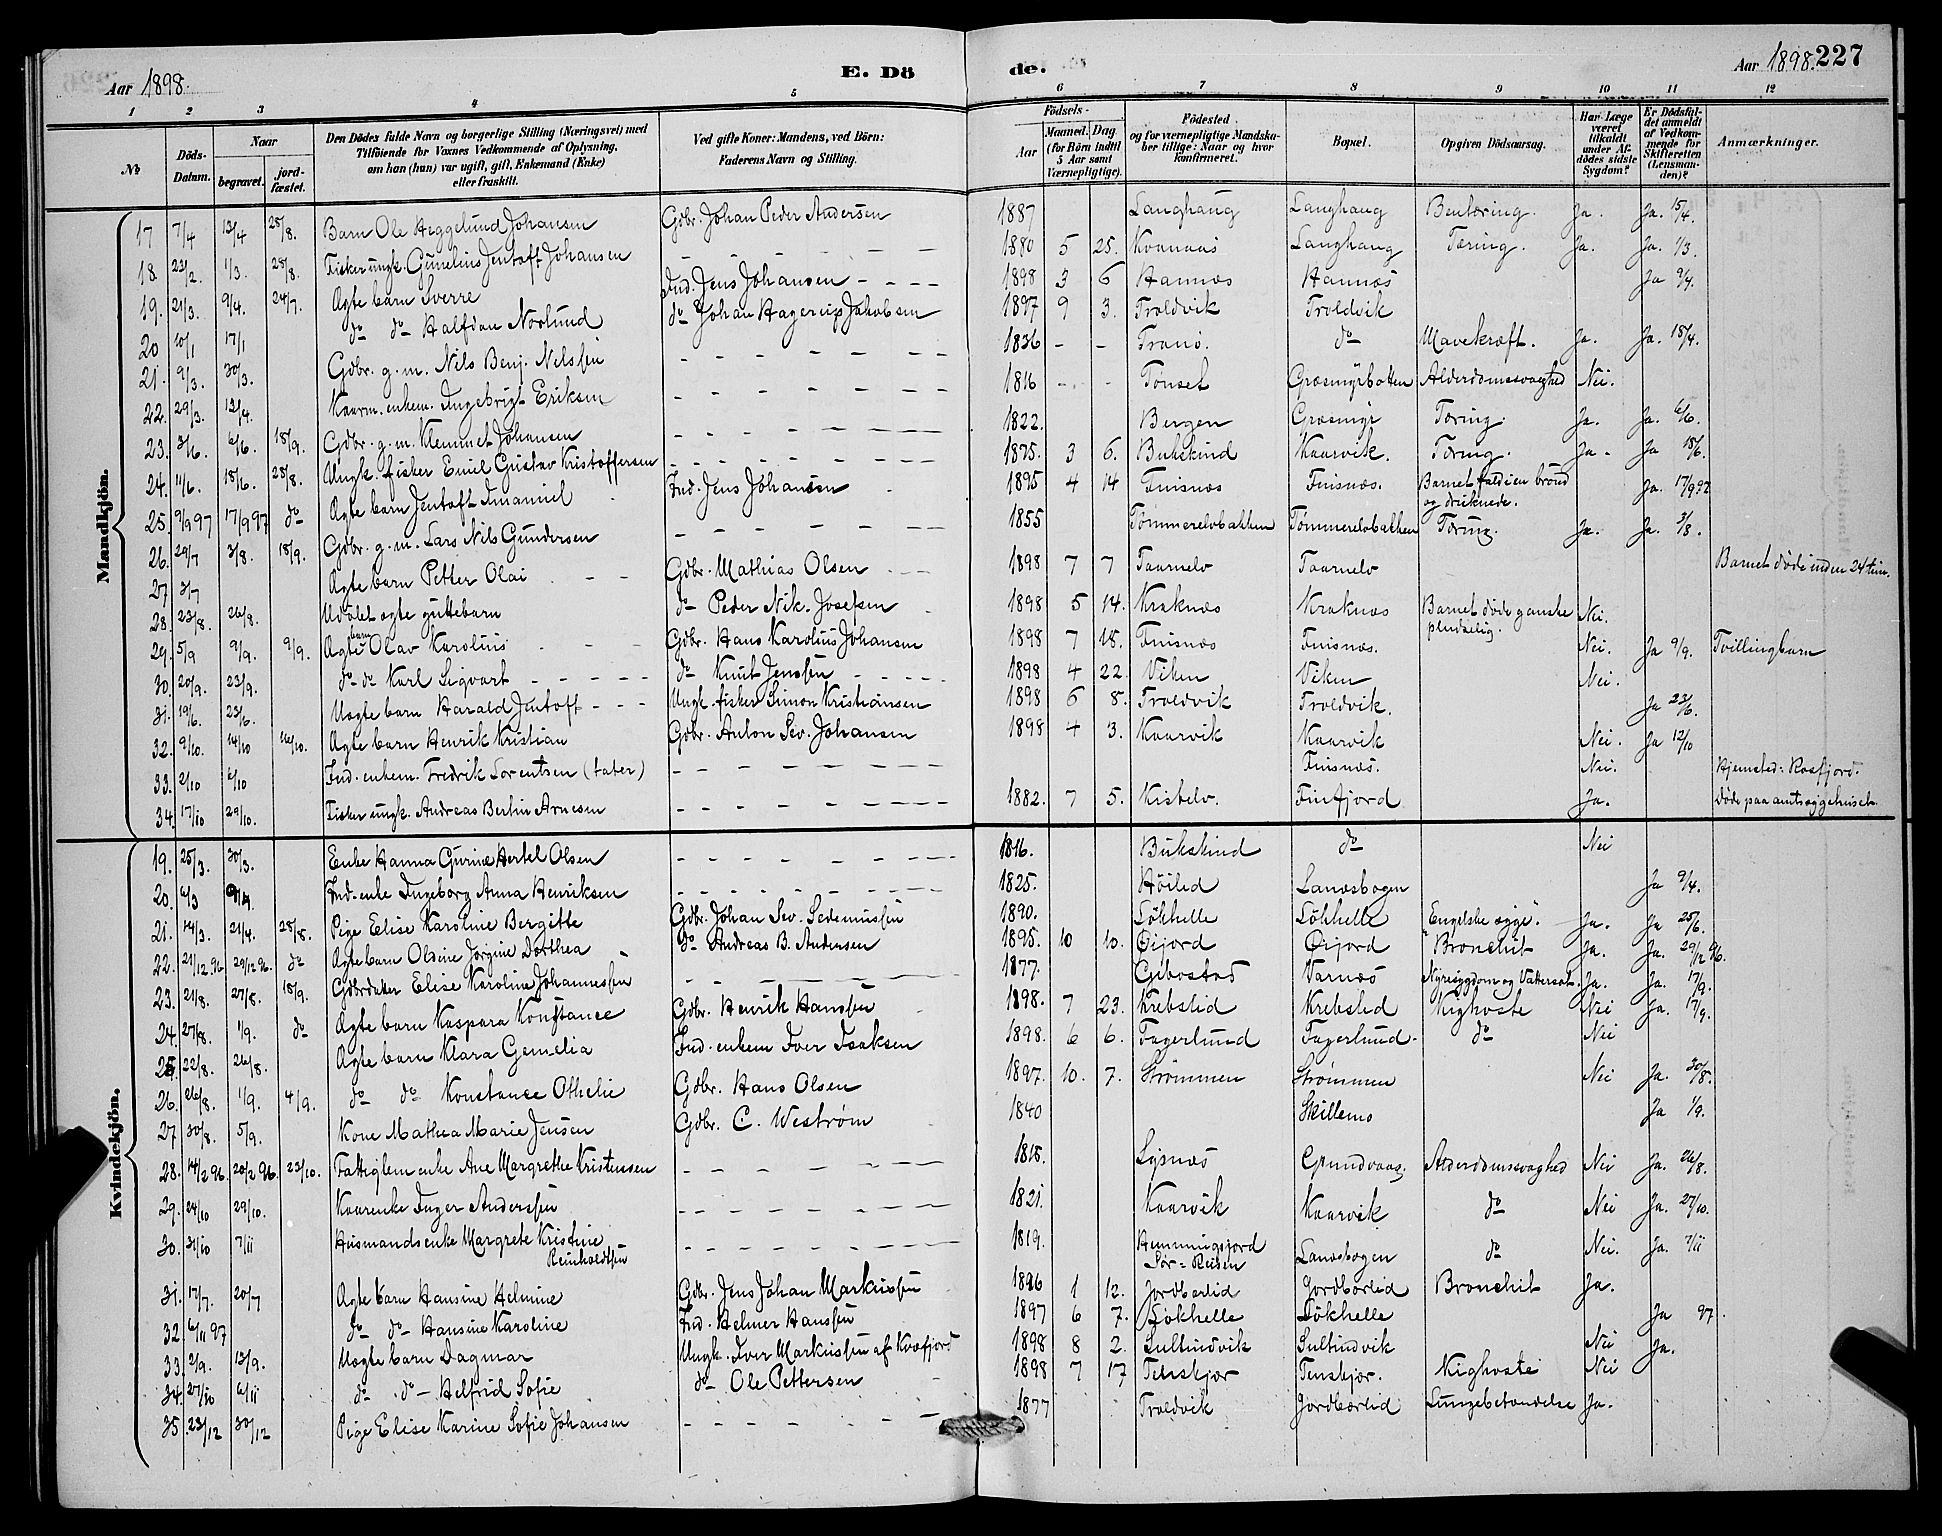 Aar 1898.
E. Dö
de.
Aar 1898. 227
1 2 3 4 5 6 7 8 9 10 11 12
№
Döds-Datum.
Naar
begravet.
jord-fæstet.
Den Dödes fulde Navn og borgerlige Stilling (Næringsvei) med Tilföiende for Voxnes Vedkommende af Oplysning, om han (hun) var ugift, gift, Enkemand (Enke) eller fraskilt.
Ved gifte Koner: Mandens, ved Börn: Faderens Navn og Stilling.
Födsels-
Aar
Maaned. Dag
(for Börn indtil 5 Aar samt Værnepligtige).
Födested
og for værnepligtige Mandska-ber tillige: Naar og hvor konfirmeret.
Bopæl.
Opgiven Dödsaarsag.
Har Læge været tilkaldt under Af-dödes sidste Sygdom?
Er Dödsfal-det anmeldt af Vedkom-mende for Skifteretten (Lensman-den)?
Anmærkninger.
Mandkjön.
17 7/4 13/4 28/8. Barn Ole Heggelund Johansen Gdbr. Johan Peder Andersen 1887 Langhaug Langhaug Bentæring. Ja. Ja. 15/4.
18. 22/2. 1/3. 28/8. Fisker ungk. Gunelius Jentoft Johansen - - - 1880 5 25. Kvannaas Langhaug Tæring. Ja. Ja. 1/3.
19. 21/3. 9/4. 24/7. Ægte barn Sverre Ind. Jens Johansen - - - 1898 3 6 Hannæs Hannæs Ja 9/4.
20 10/1 17/1 do do Halfdan Norlund do Johan Hagerup Jakobsen 1897 9 3. Troldvik Troldvik
21. 9/3. 30/3. Gdbr. g. m. Nils Benj. Nilssen - - - 1836 - - Tranö. do Mavekræft. Ja. Ja. 18/4.
22. 29/3. 13/4. Kaarm. enkem. Ingebrigt Eriksen - - - 1816 - - Tønset Græsmyrbotten Alderdomssvaghed Nei.
23. 3/6. 6/6. 18/9. Gdbr. g. m. Klemmet Johansen - - - 1822. Bergen Græsmyr Tæring. Ja. Ja. 6/6.
24. 11/6. 18/6. 28/8. Ungk. fisker Emil Gustav Kristoffersen - - - 1875. 3 6. Bukskind Kaarvik. Tæring. Ja. Ja 18/6.
25. 9/9 97 17/9 97 do Ægte barn Jentoft Imanuel Ind. Jens Johansen 1895 4 14 Finsnes Finsnes. Barnet faldt i en brønd og druknede. Ja. 17/9 97
26. 29/7 3/8. 18/9. Gdbr. g. m. Lars Nils Gundersen - - - 1855 Tømmerelvbakken Tømmerelvbakken Tæring. Ja. Ja. 3/8.
27 3/7 Ægte barn Petter Olai - - Gdbr. Mathias Olsen - - 1898 7 7 Taarnelv Taarnelv Barnet døde inden 24 tim.
28. 23/8. 26/8. Udøbt ægte guttebarn do Peder Nik. Josefsen 1898 5 14. Kraknæs Kraknæs Barnet døde ganske pludselig. Nei.
29. 5/9 9/9. 9/9. Ægte barn Olav Karolius Gdbr. Hans Karolius Johansen 1898 7 18. Finsnæs Finsnæs. Nei. Ja 9/9. Tvillingbarn
30. 20/9. 23/9. do do Karl Sigvart - - - do Knut Jenssen - - - 1898 4 22 Viken Viken Nei.
31. 19/6. 23/6. Uægte barn Harald Jentoft - - - Ungk. fisker Simon Kristiansen 1898 6 8. Troldvik Troldvik. Ja 23/6.
32. 9/10. 14/10 16/10. Ægte barn Henrik Kristian Gdbr. Anton Sev. Johansen 1898 4 3. Kaarvik Kaarvik Nei. Ja 12/10
33. 2/10 6/10 Ind. enkem. Fredrik Lorentsen (tater) - - - Finsnæs. Nei. Hjemsted: Rosfjord.
34. 17/10 29/10. Fisker ungk. Andreas Bertin Arnesen - - - 1882. 7 5. Kistelv. Finfjord Ja. Døde paa amtssygehuset.
Kvindekjön.
19. 25/3. 30/3. Enke Hanna Gurine Hertel Olsen - - - 1816. Bukskind do Nei
20. 6/3 Ind. enke Ingeborg Anna Henriksen - - - 1825. Høiled Lanesbogen Ja 9/4.
21. 14/3. 21/4. 28/8. Pige Elise Karoline Bergitte Gdbr. Johan Sev. 1890. Løkhelle Løkhelle "Engelske syge". Ja. Ja 25/6.
22. 21/12 96 29/12 96. do Ægte barn Olsine Jørgine Dorthea do Andreas B. Andersen 1895. 10 10. Øijord Øijord Bronchit Ja. Ja. 29/12 96.
23. 21/8. 27/8. 18/9. Gdbrdatter Elise Karoline Johannessen - - - 1877. Gibostad Varnæs Nyresygdom og Vattersot. Ja. Ja. 17/9.
24. 27/8. 1/9. do Ægte barn Kaspara Konstance Gdbr. Henrik Hanssen 1898. 7 23. Krebslid Krebslid Kighoste Nei Ja. 17/9.
25. 22/8. 26/8. Ægte barn Klara Gemelia Ind. enkem Iver Isaksen 1898. 6 6. Fagerlund Fagerlund. do Nei
26. 26/8. 1/9. 4/9. do do Konstance Othelie Gdbr. Hans Olsen 1897. 10. 7. Strømmen Strømmen Nei Ja. 30/8.
27 30/8. 5/9. Kone Mathea Marie Jensen Gdbr. C. Westrøm 1840 Skillemo Ja 1/9.
28. 14/2 96 20/2 96. 23/10. Fattiglem enke Ane Margrethe Kristensen - - - 1818. Lysnæs Grundvaag. Alderdomssvaghed Nei Ja. 26/8.
29. 24/10 29/10. Kaarenke Inger Anderssen - - - 1821. Kaarvik Kaarvik do Nei Ja. 27/10.
30. 31/10 7/11 Husmandsenke Margrete Kristine Reinholdtsen - - - 1819. Hemmingsjord Sør-Reisen Lanesbogen do Nei. Ja. 7/11
31. 17/7. 20/7 Ægte barn Hansine Helmine Gdbr. Jens Johan Markussen 1896 1 12. Jordbærlid Jordbærlid Bronchit Ja.
32. 6/11 97 do do Hansine Karoline Ind. Helmer Hanssen 1897 6 7. Løkhelle Løkhelle Ja 97.
33. 2/9. 13/9. Uægte barn Dagmar Ungk. Iver Markussen af Kvæfjord 1898 8 2. Sultindvik Sultindvik Nei Ja.
34. 27/10 6/11 do do Helfrid Sofie do Ole Pettersen 1898 7 17 Tenskjær Tenskjær. Kighoste Nei
35. 23/12 30/12 Pige Elise Karine Sofie Johansen - - - 1877 Troldvik Jordbærlid Lungebetændelse Ja.